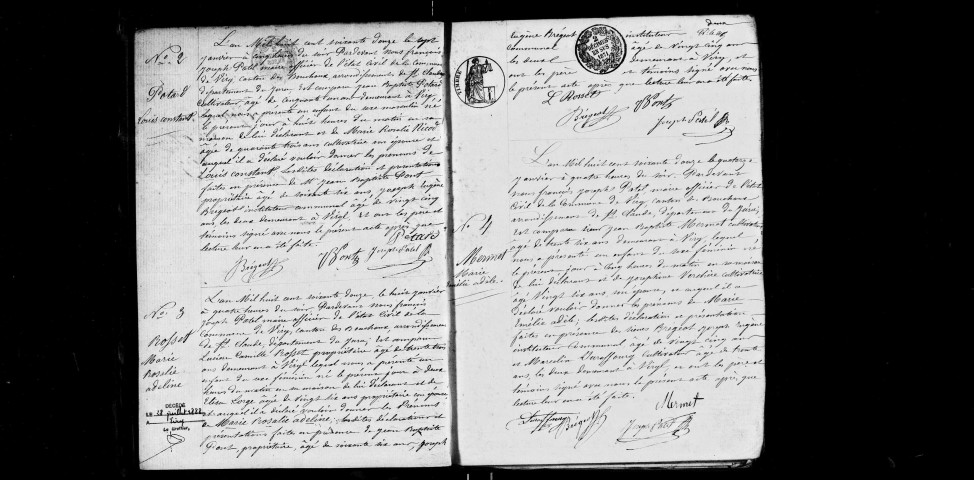 No. 2
Potard
Louis constant
L'an Mil huit cent soixante douze le sept
janvier à cinq heures du soir Pardevant nous françois
joseph Patel maire officier de l'état Civil de la commune
de Viry, canton des Bouchoux arrondissement de St Claude
département du jura, est comparu jean Baptiste Potard
Cultivateur, âgé de cinquante un ans demeurant à Viry,
lequel nous a présenté un enfant du sexe masculin né
le présent jour à huit heures du matin en sa
maison de lui déclarant et de Marie Rosalie
âgée de quarante trois ans cultivatrice son épouse et
auquel il a déclaré vouloir donner les prénoms de
Louis constant. Lesdites déclaration et présentation
faites en présence de Mr jean Baptiste Pont
propriétaire âgé de soixante six ans, joseph Eugène
Bregeot instituteur communal âgé de vingt cinq
ans les deux demeurant à Viry, et ont les père et
témoins signé avec nous le présent acte après que
lecture leur en a été faite.
Potard
Brégeot JBPont Joseph Patel
No. 3
Rosset
Marie
Rosalie
adeline
DÉCÉDÉ
LE 28 juillet 1888
à Viry
Le greffier,
L'an Mil huit cent soixante douze, le huit janvier
à quatre heures du soir Pardevant nous françois
joseph Patel maire officier de l'état Civil de la
commune de Viry, canton des Bouchoux, arrondissement
de St Claude, département du jura, est comparu
Lucien Camille Rosset propriétaire âgé de trente
ans demeurant à Viry lequel nous a présenté un
enfant du sexe féminin né le présent jour à deux
heures du matin en sa maison de lui déclarant et de
Elisa Lorge âgée de vingt six ans propriétaire son épouse
et auquel il a déclaré vouloir donner les Prénoms
de Marie Rosalie adeline; lesdites déclaration et
présentations faites en présence de jean Baptiste
Pont, propriétaire, âgé de soixante six ans, joseph
Eugène Brégeot instituteur
communal âgé de vingt cinq ans
les deux demeurant à Viry, et
ont les père et témoins signé avec nous
le présent acte après que lecture leur en a été faite.
deux
TIMBRE
L Rosset
Brégeot JBPont
Joseph Patel
No 4
Mermet
Marie
Emélie adèle
L'an Mil huit cent soixante douze le quatorze
janvier à quatre heures du soir. Pardevant
nous françois joseph Patel maire officier de l'état
Civil de la Commune de Viry, canton des Bouchoux
arrondissement de St Claude, département du jura;
est comparu sieur jean Baptiste Mermet cultivateur
âgé de trente six ans demeurant à Viry, lequel
nous a présenté un enfant du sexe féminin né
le présent jour à cinq heures du matin en sa maison
de lui déclarant et de josephine cultivatrice
âgée Vingt six ans son épouse, et auquel il a
déclaré vouloir donner les prénoms de Marie
Emélie adèle; lesdites déclaration et présentation
faites en présence de sieur Bregeot joseph Eugène
instituteur communal âgé de vingt cinq ans
et Marcelin Duraffourg Cultivateur âgé de trente
ans, les deux demeurant à Viry, et ont les père et
témoins signé avec nous le présent acte, après que
lecture leur en a été faite.
Mermet
Duraffourg Brégeot Joseph Patel